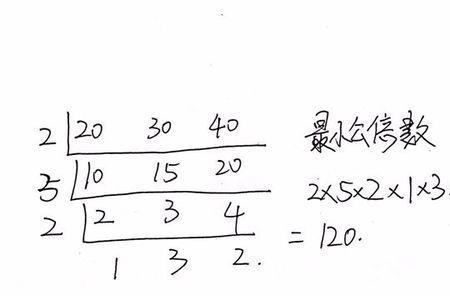 2 20 30 40 最小公倍数
5 10 15 20 2×5×2×1×3.
2 2 3 4 = 120.
1 3 2.